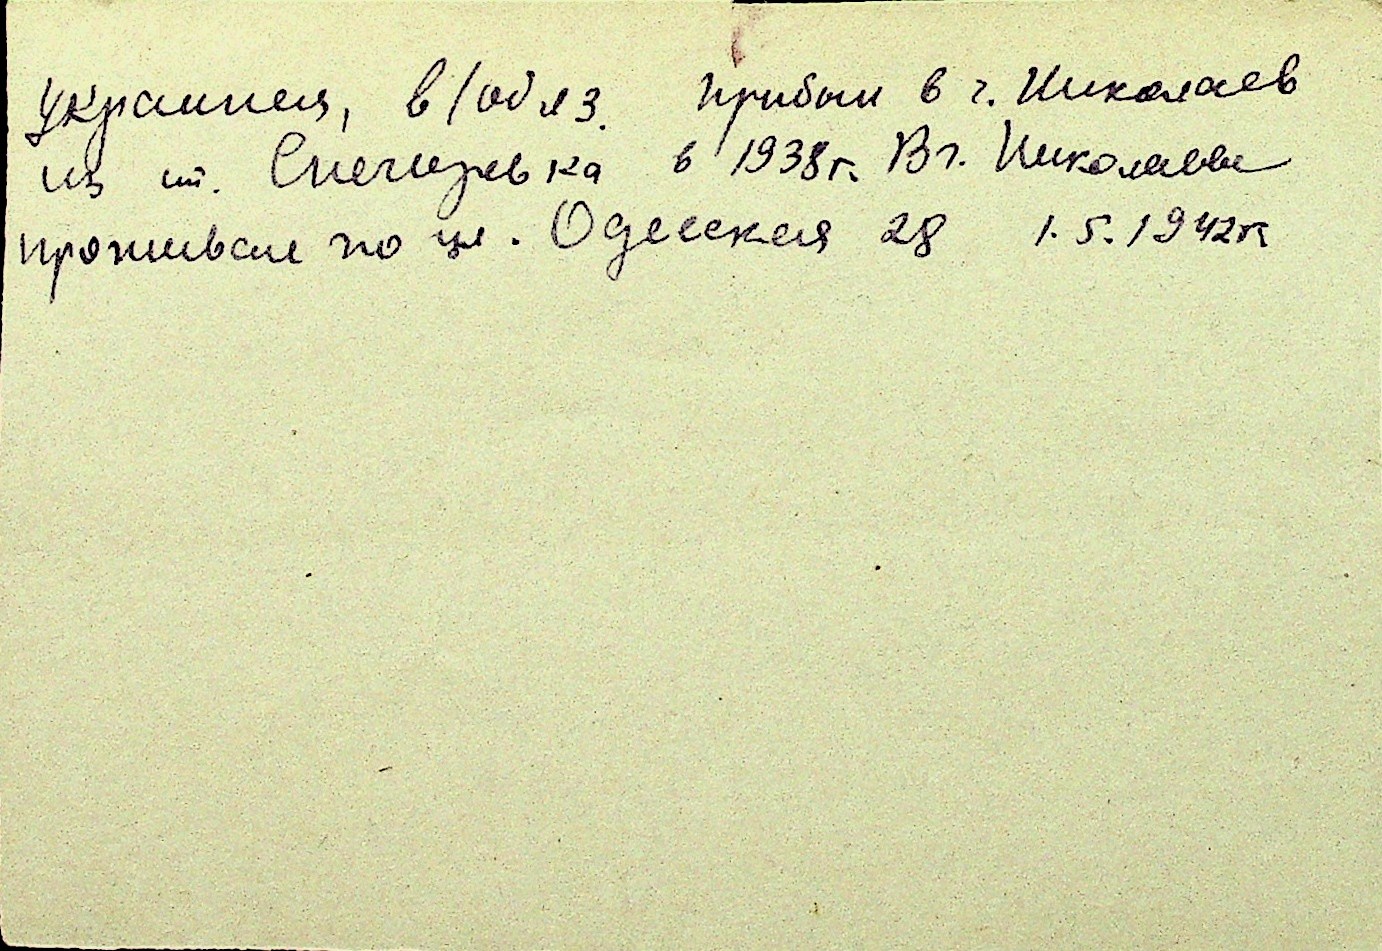 украинец, в/обяз. прибыл в г. Николаев
из ст. Снегиревка в 1938г. В г. Николаеве
проживал по ул. Одесская 28 1.5.1942г